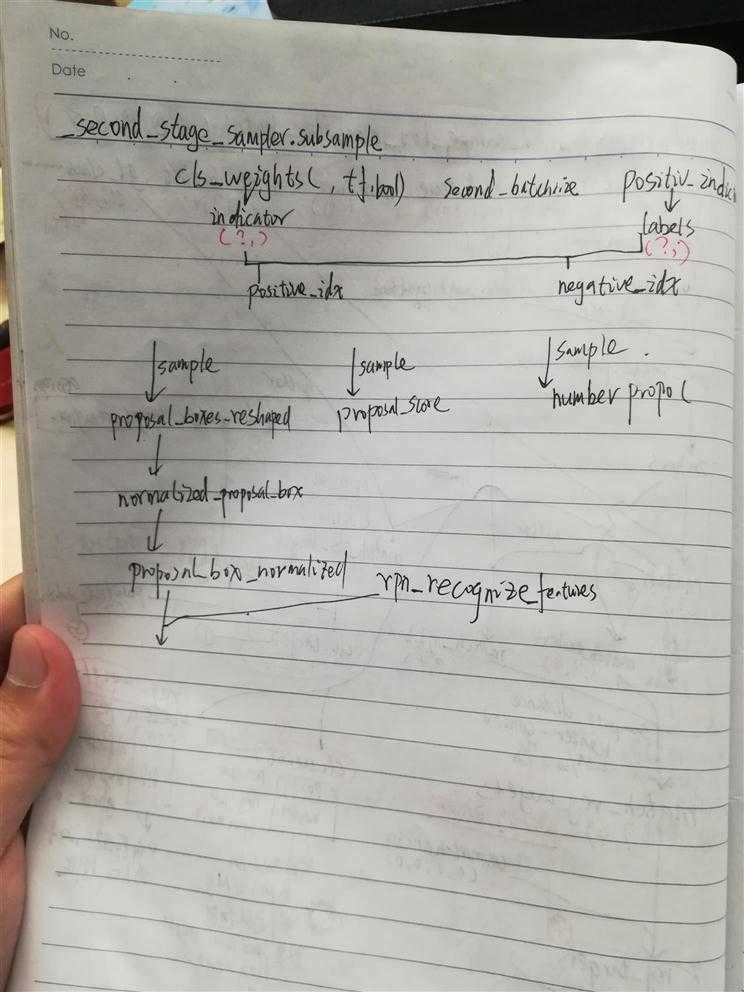 No.
Date
_second_stage_sampler.subsample
cls_weights( , tf.bool) second_batchsize positiv_indic
indicator labels
(?,) (?,)
positive_idx negative_idx
sample sample sample.
proposal_boxes_reshaped proposal_score number propol
normalized_proposal_box
proposal_box_normalized rpn_recognize_features